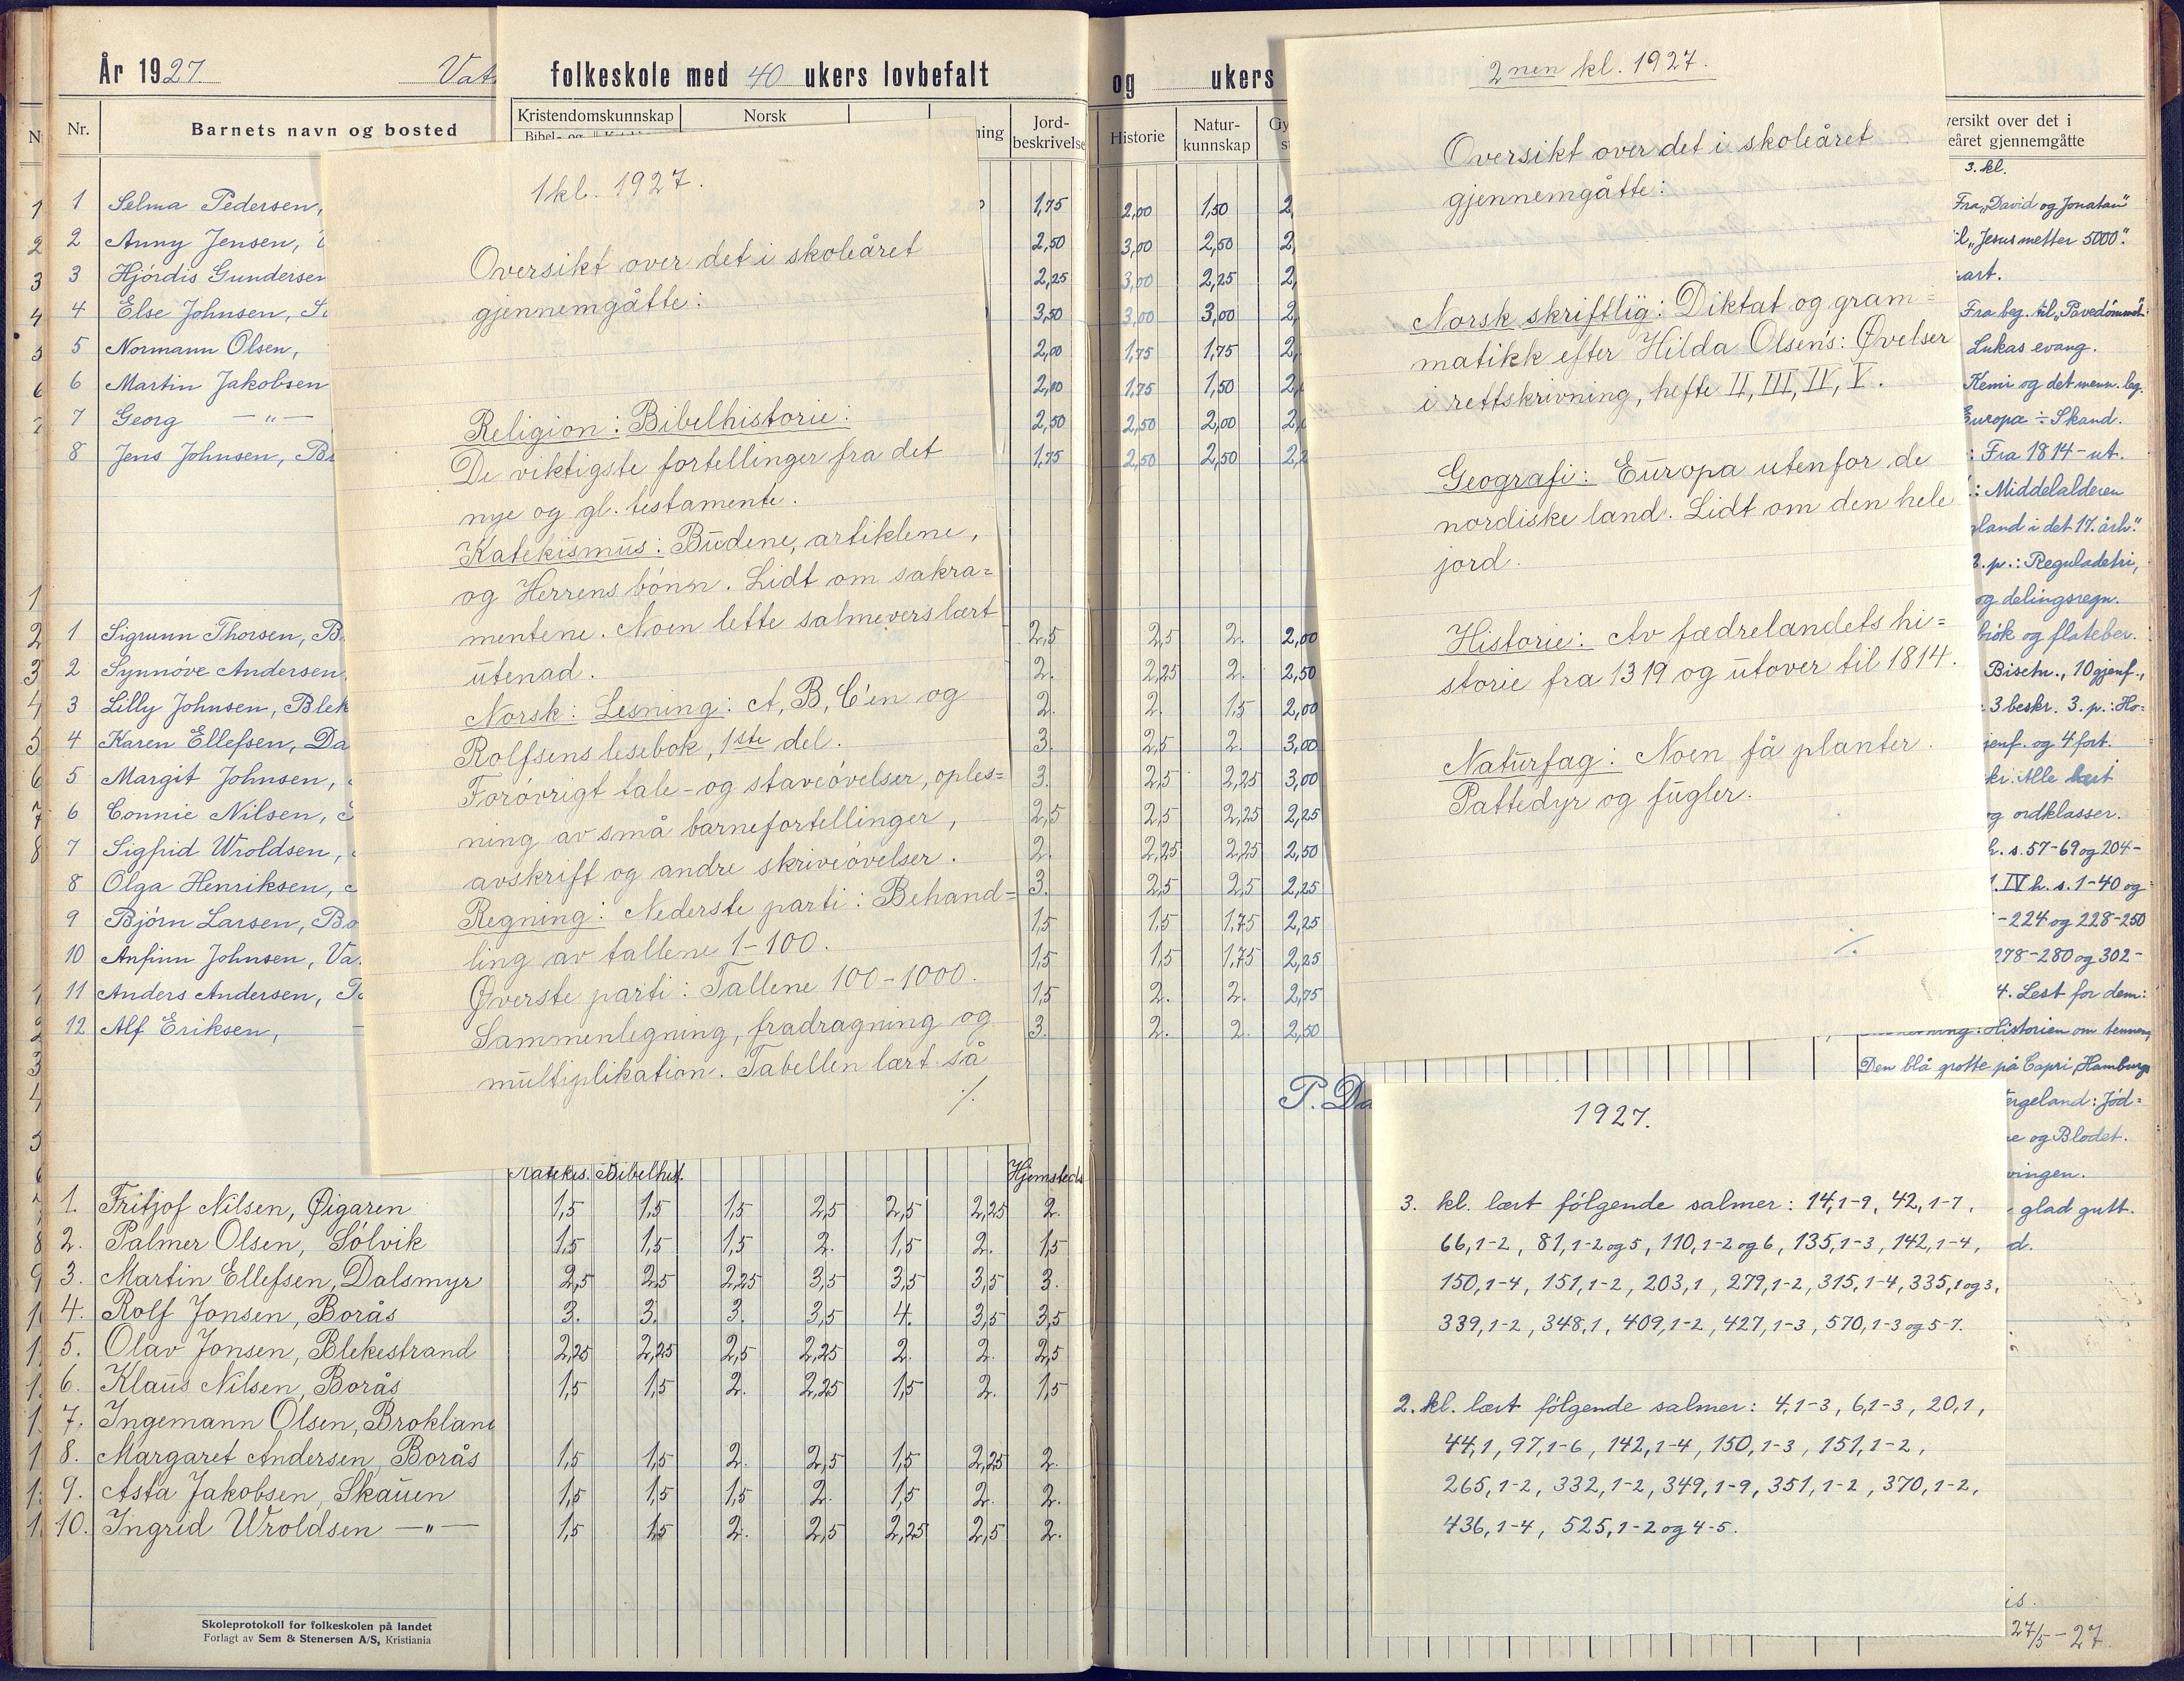 År 1927. folkeskole med 40 ukers lovbefalt
og ukers
Nr. Barnets navn og bosted
Kristendomskunnskap Norsk
Jord-
beskrivelse
Historie Natur-
kunnskap
1 Selma Pedersen, 1,75 2,00 1,50
2 Anny Jensen, 2,50 3,00 2,50
3 Hjördis Gundersen 2,25 3,00 2,25
4 Else Johnsen, 3,50 3,00 3,00
5 Normann Olsen, 2,00 1,75 1,75
6 Martin Jakobsen 2,00 1,75 1,50
7 Georg —„— 2,50 2,50 2,00
8 Jens Johnsen, 1,75 2,50 2,50
1 Sigrunn Thorsen, 2,5 2,5 2. 2,00
2 Synnöve Andersen, 2. 2,25 2. 2,50
3 Lilly Johnsen, Blek 2. 2. 1,5 2,00
4 Karen Ellefsen, Da 3. 2,5 2. 3,00
5 Margit Johnsen, 3. 2,5 2,25 3,00
6 Connie Nilsen, 2,5 2,5 2,25 2,25
7 Sigfrid Wroldsen, 2. 2,25 2,25 2,50
8 Olga Henriksen, 3. 2,5 2,5 2,25
9 Björn Larsen, Bo 1,5 1,5 1,75 2,25
10 Anfinn Johnsen, Va 1,5 1,5 1,75 2,25
11 Anders Andersen, 1,5 2. 2. 2,75
12 Alf Eriksen, 3. 2. 2. 2,50
P. Da
Katekis. Bibelhist. Hjemsteds
1. Fritjof Nilsen, Øigaren 1,5 1,5 1,5 2,5 2,5 2,25 2.
2. Palmer Olsen, Sölvik 1,5 1,5 1,5 2. 1,5 2. 1,5
3. Martin Ellefsen, Dalsmyr 2,5 2,5 2,25 3,5 3,5 3,5 3.
4. Rolf Jonsen, Borås 3. 3. 3. 3,5 4. 3,5 3,5
5. Olav Jonsen, Blekestrand 2,25 2,25 2,5 2,25 2. 2. 2,5
6. Klaus Nilsen, Borås 1,5 1,5 2. 2,25 1,5 2. 1,5
7. Ingemann Olsen, Broklan
8. Margaret Andersen, Borås 1,5 1,5 2. 2,5 1,5 2,25 2.
9. Asta Jakobsen, Skauen 1,5 1,5 1,5 2. 1,5 2. 2.
10. Ingrid Wroldsen —„— 1,5 1,5 2. 2,5 2,25 2,5 2.
Skoleprotokoll for folkeskolen på landet
Forlagt av Sem & Stenersen A/S, Kristiania
1 kl. 1927.
Oversikt over det i skoleåret
gjennemgåtte:
Religion: Bibelhistorie:
De viktigste fortellinger fra det
nye og gl. testamente.
Katekismus: Budene, artiklene,
og Herrens bönn. Lidt om sakra=
mentene. Noen lette salmevers lært
utenad.
Norsk: Lesning: A, B, C'en og
Rolfsens lesebok, 1ste del.
Forövrigt tale- og staveövelser, oples=
ning av små barnefortellinger,
avskrift og andre skriveövelser.
Regning: Nederste parti: Behand=
ling av tallene 1-100.
Øverste parti: Tallene 100-1000.
Sammenlegning, fradragning og
multiplikation. Tabellen lært så
./.
2nen kl. 1927.
Oversikt over det i skoleåret
gjennemgåtte:
Norsk skriftlig: Diktat og gram=
matikk efter Hilda Olsens: Øvelser
i rettskrivning, hefte II, III, IV, V.
Geografi: Europa utenfor de
nordiske land. Lidt om den hele
jord.
Historie: Av fædrelandets hi=
storie fra 1319 og utover til 1814.
Naturfag: Noen få planter.
Pattedyr og fugler.
./.
1927.
3. kl. lært fölgende salmer: 14,1-9, 42,1-7,
66,1-2, 81,1-2 og 5, 110,1-2 og 6, 135,1-3, 142,1-4,
150,1-4, 151,1-2, 203,1, 279,1-2, 315,1-4, 335,1 og 3,
339,1-2, 348,1, 409,1-2, 427,1-3, 570,1-3 og 5-7.
2. kl. lært fölgende salmer: 4,1-3, 6,1-3, 20,1,
44,1, 97,1-6, 142,1-4, 150,1-3, 151,1-2,
265,1-2, 332,1-2, 349,1-9, 351,1-2, 370,1-2,
436,1-4, 525,1-2 og 4-5.
ersikt over det i
eåret gjennemgåtte
3. kl.
Fra „David og Jonatan"
„Jesus metter 5000".
Fra beg. til „Pavedömmet"
Lukas evang.
Kemi og det menn. leg.
Europa ÷ Skand.
: Fra 1814 - ut.
: Middelalderen
land i det 17. årh."
p.: Reguladetri,
og delingsregn.
brök og flateber.
Bisetn., 10 gjenf.,
3 beskr. 3. p.: Ho=
og 4 fort.
Alle lært
og ordklasser.
h. s. 57-69 og 204-
IV h. s. 1-40 og
-224 og 228-250
278-280 og 302-
4. Lest for dem:
Historien om tennene,
Den blå grotte på Capri, Hamburg
ergeland: Jöd=
og Blodet.
vingen.
glad gutt.
27/5 - 27